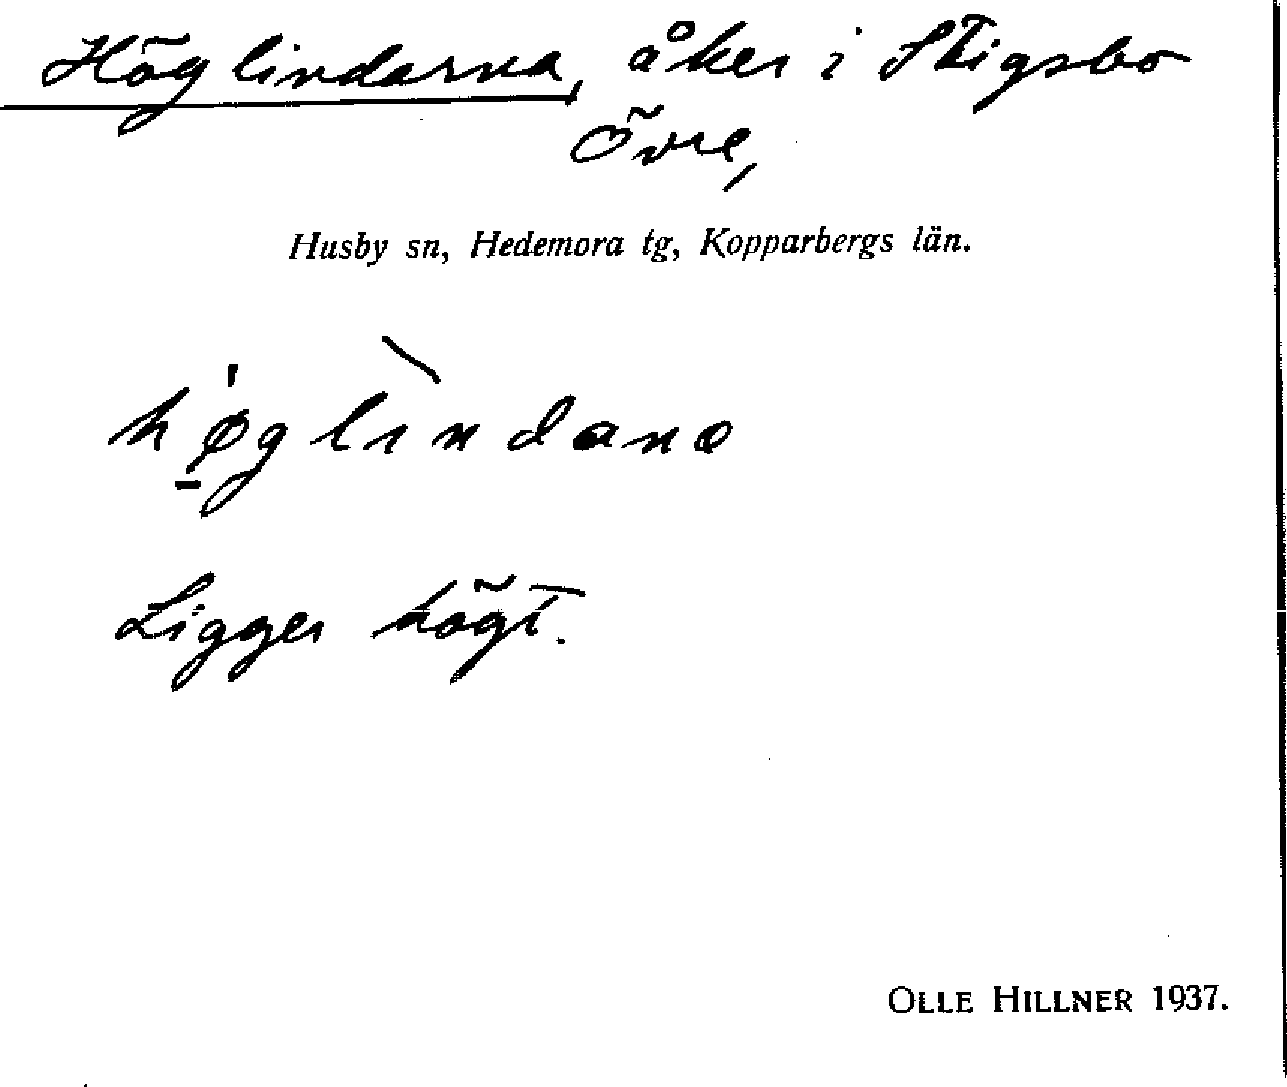 Höglindarna, åker i Stigsbo
Övre,
Husby sn, Hedemora tg, Kopparbergs län.
hø̱̍glìndana
Ligger högt.
OLLE HILLNER 1937.